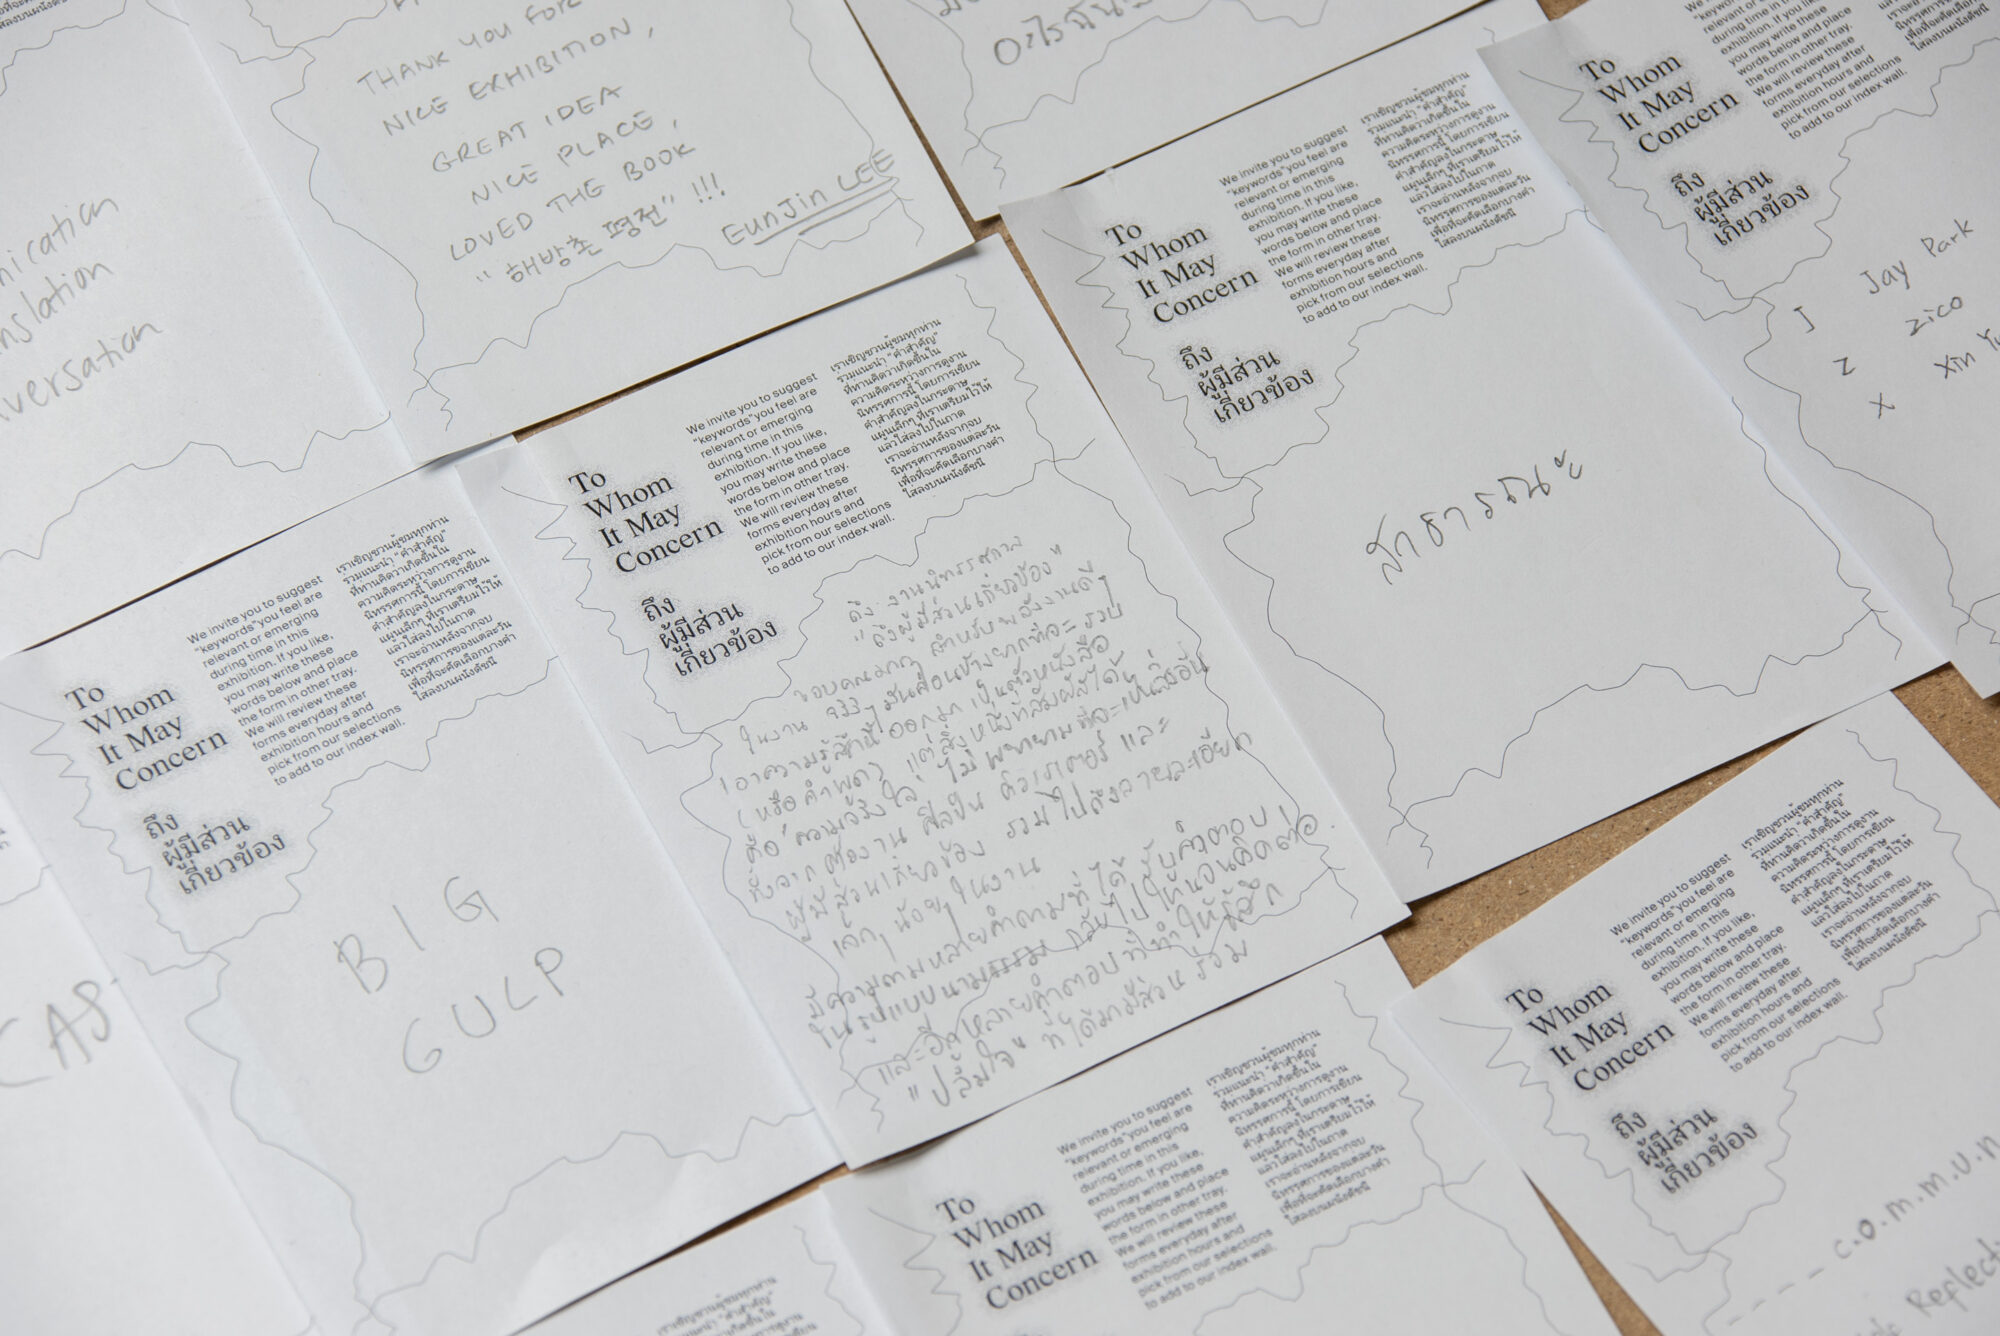 THANK YOU FOR
NICE EXHIBITION,
GREAT IDEA
NICE PLACE,
LOVED THE BOOK
"해방촌 평전" !!!
EUNJIN LEE
อะไร
nication
nslation
versation
To
Whom
It May
Concern
ถึง
ผู้มีส่วน
เกี่ยวข้อง
relevant or emerging
during time in this
exhibition. If you like,
you may write these
words below and place
the form in other tray.
We will review these
forms everyday after
exhibition hours and
pick from our selections
to add to our index wall.
J Jay Park
Z Zico
X Xin
To
Whom
It May
Concern
ถึง
ผู้มีส่วน
เกี่ยวข้อง
We invite you to suggest
"keywords"you feel are
relevant or emerging
during time in this
exhibition. If you like,
you may write these
words below and place
the form in other tray.
We will review these
forms everyday after
exhibition hours and
pick from our selections
to add to our index wall.
เราเชิญชวนผู้ชมทุกท่าน
ร่วมแนะนำ "คำสำคัญ"
ที่ท่านคิดว่าเกิดขึ้นใน
ความคิดระหว่างการดูงาน
นิทรรศการนี้ โดยการเขียน
คำสำคัญลงในกระดาษ
แผ่นเล็กๆ ที่เราเตรียมไว้ให้
แล้วใส่ลงไปในถาด
เราจะอ่านหลังจากจบ
นิทรรศการของแต่ละวัน
เพื่อที่จะคัดเลือกบางคำ
ใส่ลงบนผนังดัชนี
สาธารณะ
To
Whom
It May
Concern
ถึง
ผู้มีส่วน
เกี่ยวข้อง
We invite you to suggest
"keywords"you feel are
relevant or emerging
during time in this
exhibition. If you like,
you may write these
words below and place
the form in other tray.
We will review these
forms everyday after
exhibition hours and
pick from our selections
to add to our index wall.
เราเชิญชวนผู้ชมทุกท่าน
ร่วมแนะนำ "คำสำคัญ"
ที่ท่านคิดว่าเกิดขึ้นใน
ความคิดระหว่างการดูงาน
นิทรรศการนี้ โดยการเขียน
คำสำคัญลงในกระดาษ
แผ่นเล็กๆ ที่เราเตรียมไว้ให้
แล้วใส่ลงไปในถาด
เราจะอ่านหลังจากจบ
นิทรรศการของแต่ละวัน
เพื่อที่จะคัดเลือกบางคำ
ใส่ลงบนผนังดัชนี
ถึง งานนิทรรศการ
"ถึงผู้มีส่วนเกี่ยวข้อง"
ขอบคุณมากๆ สำหรับพลังงานดีๆ
ในงาน มันค่อนข้างยากที่จะรวบ
เอาความรู้สึกนี้ออกมาเป็นตัวหนังสือ
(หรือคำพูด) แต่สิ่งหนึ่งที่สัมผัสได้
คือ "ความจริงใจ" ไม่พยายามที่จะเป็นสิ่งอื่น
ทั้งจากตัวงาน ศิลปิน คิวเรเตอร์ และ
ผู้มีส่วนเกี่ยวข้อง รวมไปถึงรายละเอียด
เล็กๆ น้อยๆ ในงาน
มีความถามหลายคำถามที่ได้รับคำตอบ
ในรูปแบบนามธรรม กลับไปให้จนคิดต่อ.
และอีกหลายคำตอบที่ทำให้รู้สึก
"ปลื้มใจ" ที่ได้มามีส่วนร่วม
To
Whom
It May
Concern
ถึง
ผู้มีส่วน
เกี่ยวข้อง
We invite you to suggest
"keywords"you feel are
relevant or emerging
during time in this
exhibition. If you like,
you may write these
words below and place
the form in other tray.
We will review these
forms everyday after
exhibition hours and
pick from our selections
to add to our index wall.
เราเชิญชวนผู้ชมทุกท่าน
ร่วมแนะนำ "คำสำคัญ"
ที่ท่านคิดว่าเกิดขึ้นใน
ความคิดระหว่างการดูงาน
นิทรรศการนี้ โดยการเขียน
คำสำคัญลงในกระดาษ
แผ่นเล็กๆ ที่เราเตรียมไว้ให้
แล้วใส่ลงไปในถาด
เราจะอ่านหลังจากจบ
นิทรรศการของแต่ละวัน
เพื่อที่จะคัดเลือกบางคำ
ใส่ลงบนผนังดัชนี
BIG
GULP
CAS
To
Whom
It May
Concern
ถึง
ผู้มีส่วน
เกี่ยวข้อง
We invite you to suggest
"keywords"you feel are
relevant or emerging
during time in this
exhibition. If you like,
you may write these
words below and place
the form in other tray.
We will review these
forms everyday after
exhibition hours and
pick from our selections
to add to our index wall.
เราเชิญชวนผู้ชมทุกท่าน
ร่วมแนะนำ "คำสำคัญ"
ที่ท่านคิดว่าเกิดขึ้นใน
ความคิดระหว่างการดูงาน
นิทรรศการนี้ โดยการเขียน
คำสำคัญลงในกระดาษ
แผ่นเล็กๆ ที่เราเตรียมไว้ให้
แล้วใส่ลงไปในถาด
เราจะอ่านหลังจากจบ
นิทรรศการของแต่ละวัน
เพื่อที่จะคัดเลือกบางคำ
ใส่ลงบนผนังดัชนี
---- c.o.m.m.u.n
Reflecti
To
Whom
It May
Concern
We invite you to suggest
"keywords"you feel are
relevant or emerging
during time in this
exhibition. If you like,
you may write these
words below and place
the form in other tray.
We will review these
forms everyday after
exhibition hours and
pick from our selections
to add to our index wall.
เราเชิญชวนผู้ชมทุกท่าน
ร่วมแนะนำ "คำสำคัญ"
ที่ท่านคิดว่าเกิดขึ้นใน
ความคิดระหว่างการดูงาน
นิทรรศการนี้ โดยการเขียน
คำสำคัญลงในกระดาษ
แผ่นเล็กๆ ที่เราเตรียมไว้ให้
แล้วใส่ลงไปในถาด
เราจะอ่านหลังจากจบ
นิทรรศการของแต่ละวัน
เพื่อที่จะคัดเลือกบางคำ
ใส่ลงบนผนังดัชนี
เราเชิญชวนผู้ชมทุกท่าน
ร่วมแนะนำ "คำสำคัญ"